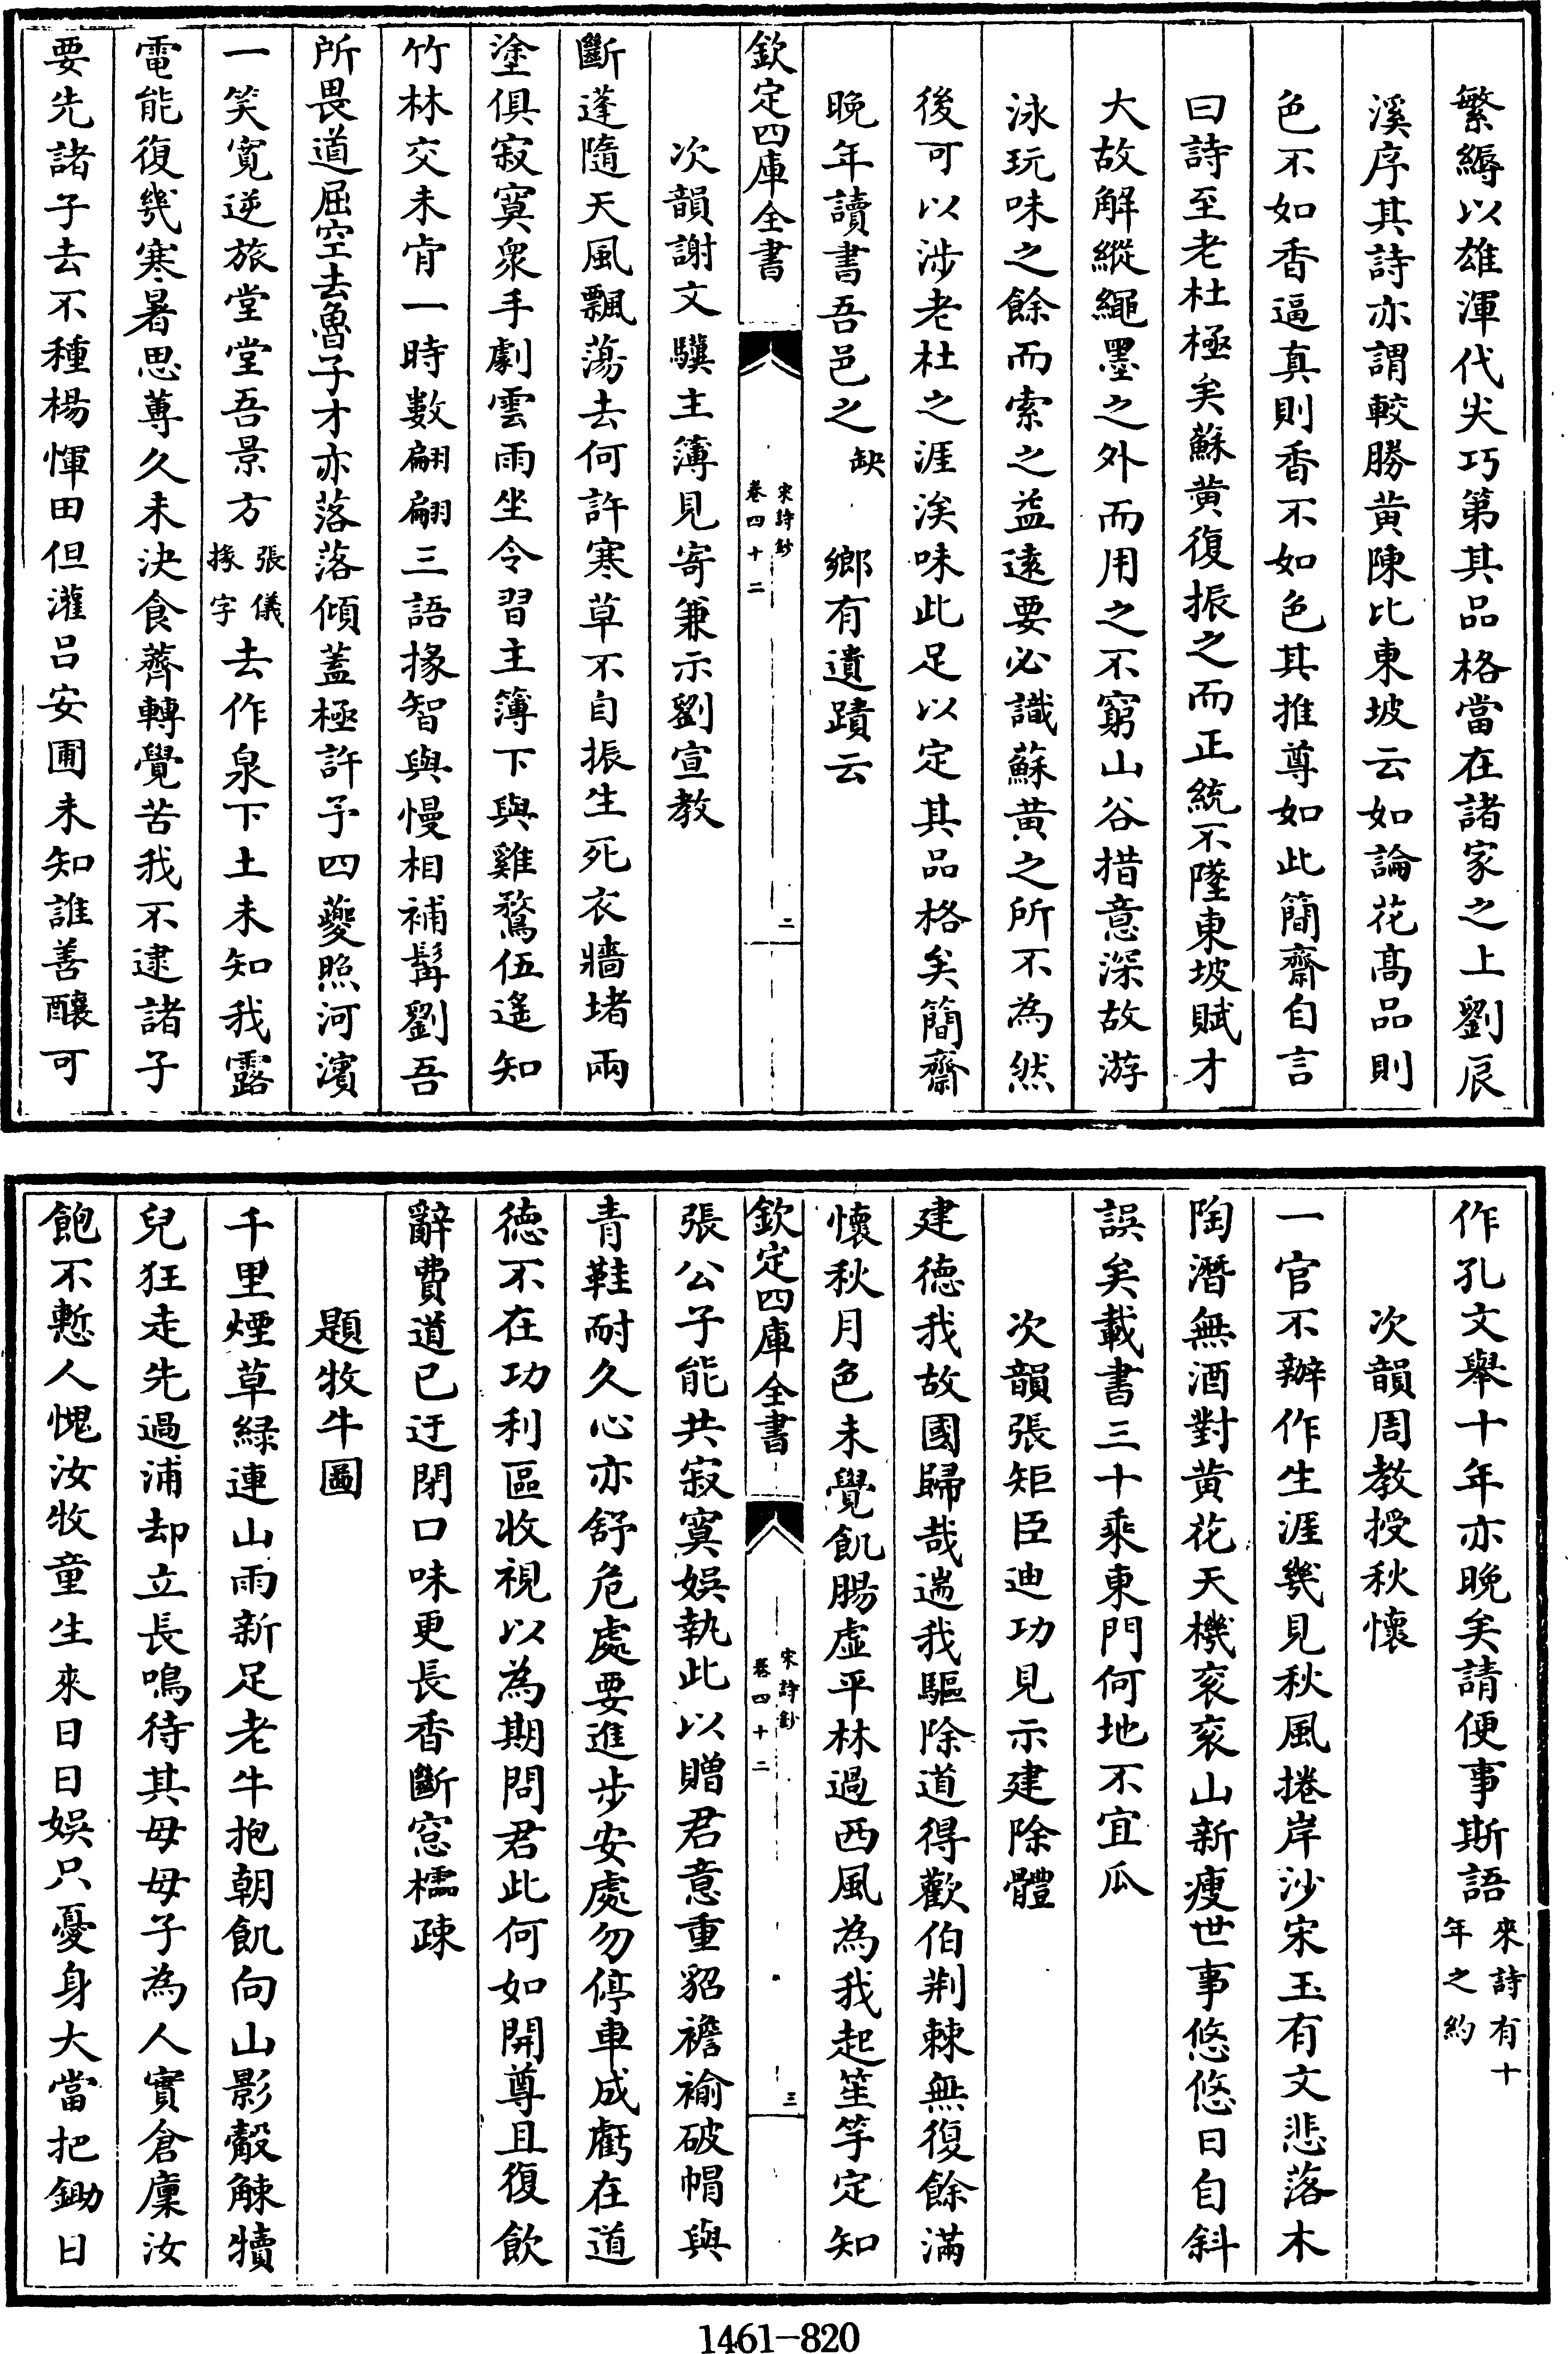 繁縟以雄渾代尖巧第其品格當在諸家之上劉辰
溪序其詩亦謂較勝黄陳比東坡云如論花高品則
色不如香逼真則香不如色其推尊如此簡齋自言
曰詩至老杜極矣蘇黄復振之而正統不墜東坡賦才
大故解縱繩墨之外而用之不窮山谷措意深故游
泳玩味之餘而索之益遠要必識蘇黄之所不為然
後可以涉老杜之涯涘味此足以定其品格矣簡齋
晚年讀書吾邑之缺鄉有遺蹟云
欽定四庫全書
宋詩鈔
卷四十二
二
次韻謝文驥主簿見寄兼示劉宣教
斷蓬隨天風飄蕩去何許寒草不自振生死衣牆堵兩
塗俱寂寞衆手劇雲雨坐令習主簿下與雞鶩伍遙知
竹林交未肯一時數翩翩三語掾智與慢相補髯劉吾
所畏道屈空去魯子才亦落落傾蓋極許予四夔照河濱
一笑寛逆旅堂堂吾景方張儀掾字去作泉下土未知我露
電能復幾寒暑思蓴久未決食薺轉覺苦我不逮諸子
要先諸子去不種楊惲田但灌吕安圃未知誰善釀可
作孔文舉十年亦晚矣請便事斯語來詩有十年之約
次韻周教授秋懷
一官不辦作生涯幾見秋風捲岸沙宋玉有文悲落木
陶潛無酒對黄花天機衮衮山新瘦世事悠悠日自斜
誤矣載書三十乘東門何地不宜瓜
次韻張矩臣迪功見示建除體
建德我故國歸哉遄我驅除道得歡伯荆棘無復餘滿
懷秋月色未覺飢腸虚平林過西風為我起笙竽定知
欽定四庫全書
宋詩鈔
卷四十二
三
張公子能共寂寞娱執此以贈君意重貂襜褕破帽與
青鞋耐久心亦舒危處要進步安處勿停車成虧在道
徳不在功利區收視以為期問君此何如開尊且復飲
辭費道已迂閉口味更長香斷窓櫺疎
題牧牛圖
千里煙草緑連山雨新足老牛抱朝飢向山影觳觫犢
兒狂走先過浦却立長鳴待其母母子為人實倉廩汝
飽不慙人愧汝牧童生來日日娱只憂身大當把鋤日
1461-820